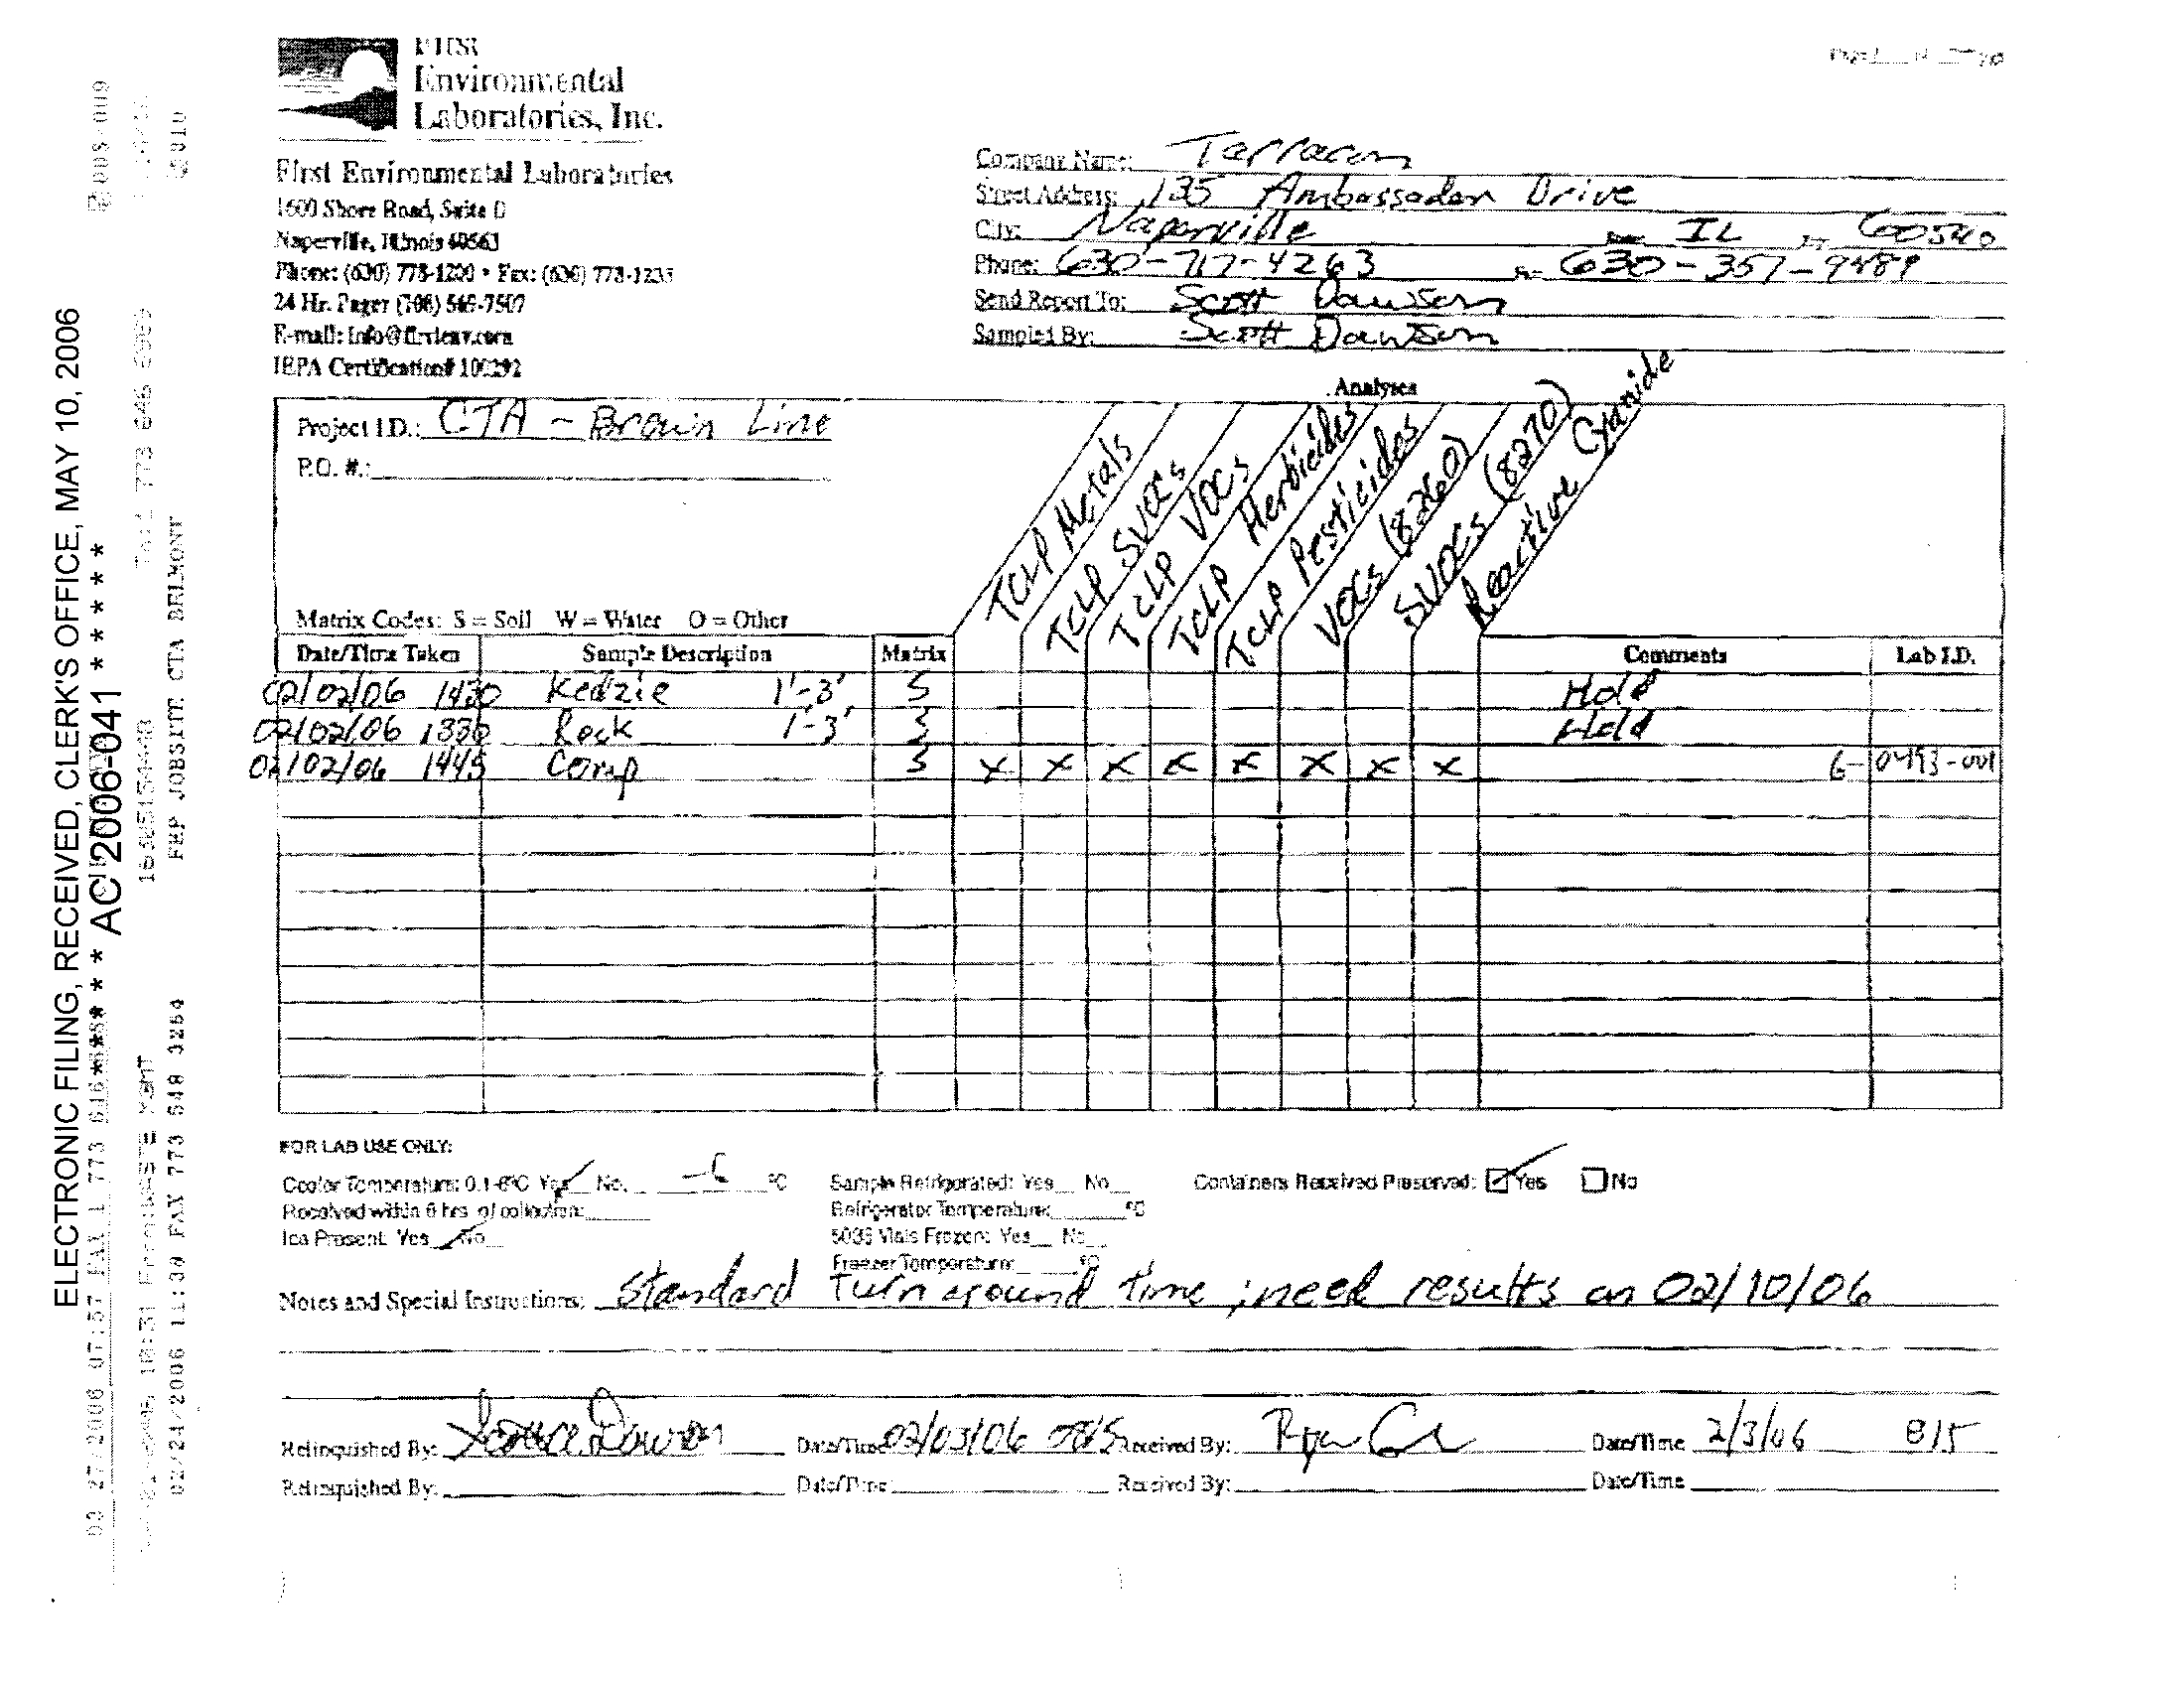 First
Environmental
Laboratories, Inc.
First Environmental Laboratories
1600 Shore Road, Suite D
Naperville, Illinois 60563
Phone: (630) 778-1200 • Fax: (630) 778-1233
24 Hr. Pager (708) 569-7507
E-mail: info@firstenv.com
IEPA Certification# 100292
Company Name: Terracon
Street Address: 135 Ambassador Drive
City: Naperville IL 60540
Phone: 630-717-4263 630-357-9489
Send Report To: Scott Dawson
Sampled By: Scott Dawson
Analyses
Project I.D.: CTA - Brown Line
P.O. #.:
TCLP Metals
TCLP SVOCs
TCLP VOCs
TCLP Herbicides
TCLP Pesticides
VOCs (8260)
SVOCs (8270)
Reactive Cyanide
Matrix Codes: S = Soil W = Water O = Other
Date/Time Taken Sample Description Matrix Comments Lab I.D.
02/02/06 1430 Kedzie 1'-3' S Hold
02/02/06 1330 Rock 1'-3' S Hold
02/02/06 1445 Comp S X X X X X X X X 6-0493-001
FOR LAB USE ONLY:
Cooler Temperature: 0.1-6°C Yes ✓ No °C Sample Refrigerated: Yes No Containers Received Preserved: ☑ Yes ☐ No
Received within 6 hrs. of collection: Refrigerator Temperature: °C
Ice Present: Yes ✓ No 5035 Vials Frozen: Yes No
Freezer Temperature: °C
Notes and Special Instructions: Standard turn around time ; need results on 02/10/06
Relinquished By: Date/Time 02/03/06 0815 Received By: Date/Time 2/3/06 815
Relinquished By: Date/Time Received By: Date/Time
ELECTRONIC FILING, RECEIVED, CLERK'S OFFICE, MAY 10, 2006
* * * * * AC 2006-041 * * * * *
02/24/2006 11:30 FAX 773 648 0254 FHP JOBSITE CTA BELMONT